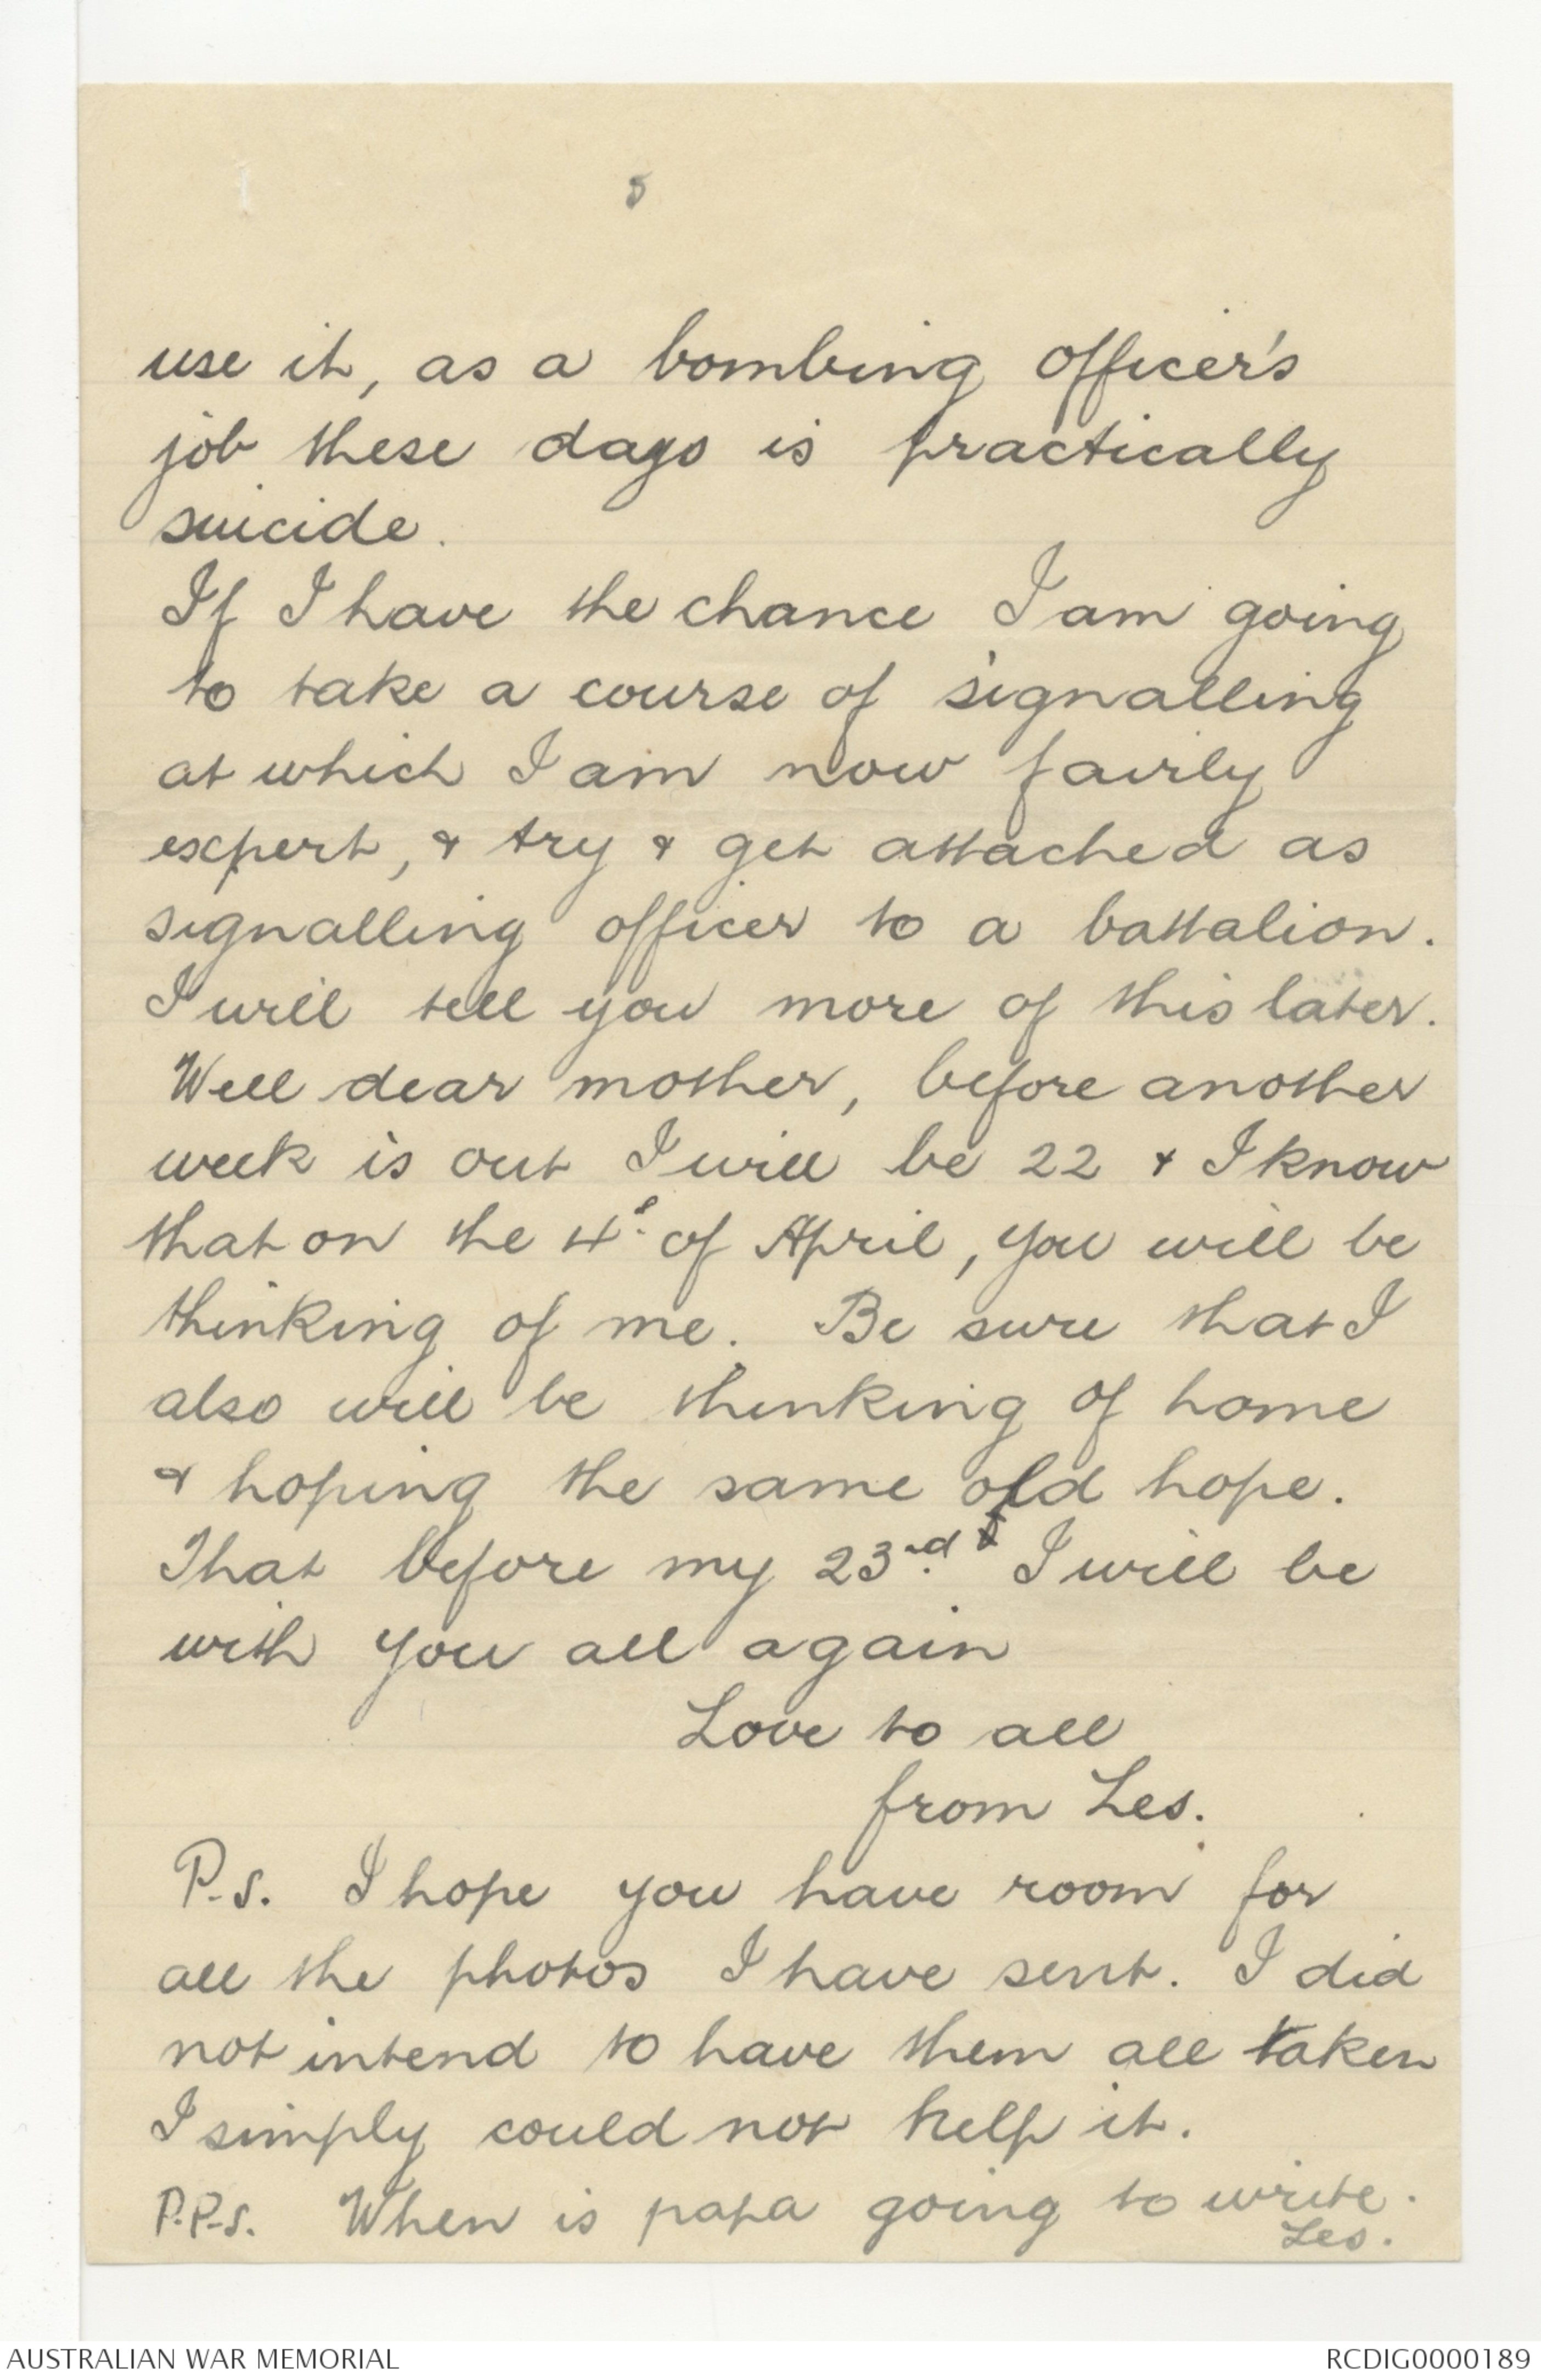 8
use it, as a bombing officer's
job these days is practically
suicide.
If I have the chance I am going
to take a course of signalling
at which I am now fairly
expert, & try & get attached as
signalling officer to a battalion.
I will tell you more of this later.
Well dear mother, before another
week is out I will be 22 & I know
that on the 4th of April, you will be
thinking of me. Be sure that I
also will be thinking of home
& hoping the same old hope.
That before my 23rd I will be
with you all again
Love to all
from Les.
P.S. I hope you have room for
all the photos I have sent. I did
not intend to have them all taken
I simply could not help it.
P.P.S. When is papa going to write.
Les.
AUSTRALIAN WAR MEMORIAL
RCDIG0000189